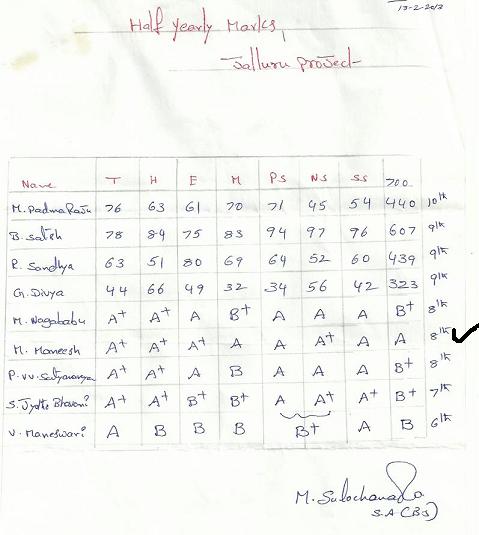 13-2-2013
Half Yearly Marks,
Jalluru project
Name T H E M PS NS SS 700
M. Padma Raju 76 63 61 70 71 45 54 440 10th
B. Satish 78 84 75 83 94 97 96 607 9th
R. Sandhya 63 51 80 69 64 52 60 439 9th
G. Divya 44 66 49 32 34 56 42 323 9th
M. Nagababu A+ A+ A B+ A A A B+ 8th
M. Maneesh A+ A+ A+ A A A+ A A 8th
P. V.V. Satyanarayana A+ A+ A B A A A B+ 8th
S. Jyothi Bhavani A+ A+ B+ B+ A A+ A+ B+ 7th
V. Maneswari A B B B B+ A B 6th
M. Sulochana
S.A (B.S)